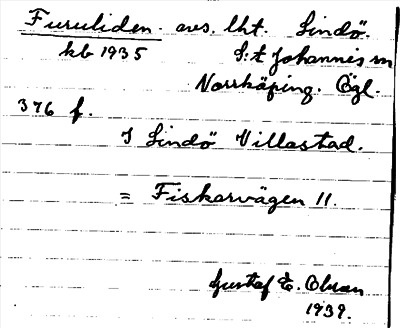 Furuliden. avs. lht. Lindö.
kb 1935 S:t Johannes sn
Norrköping. Ögl.
376 f.
I Lindö Villastad.
= Fiskarvägen 11.
Gustaf E.
1939.